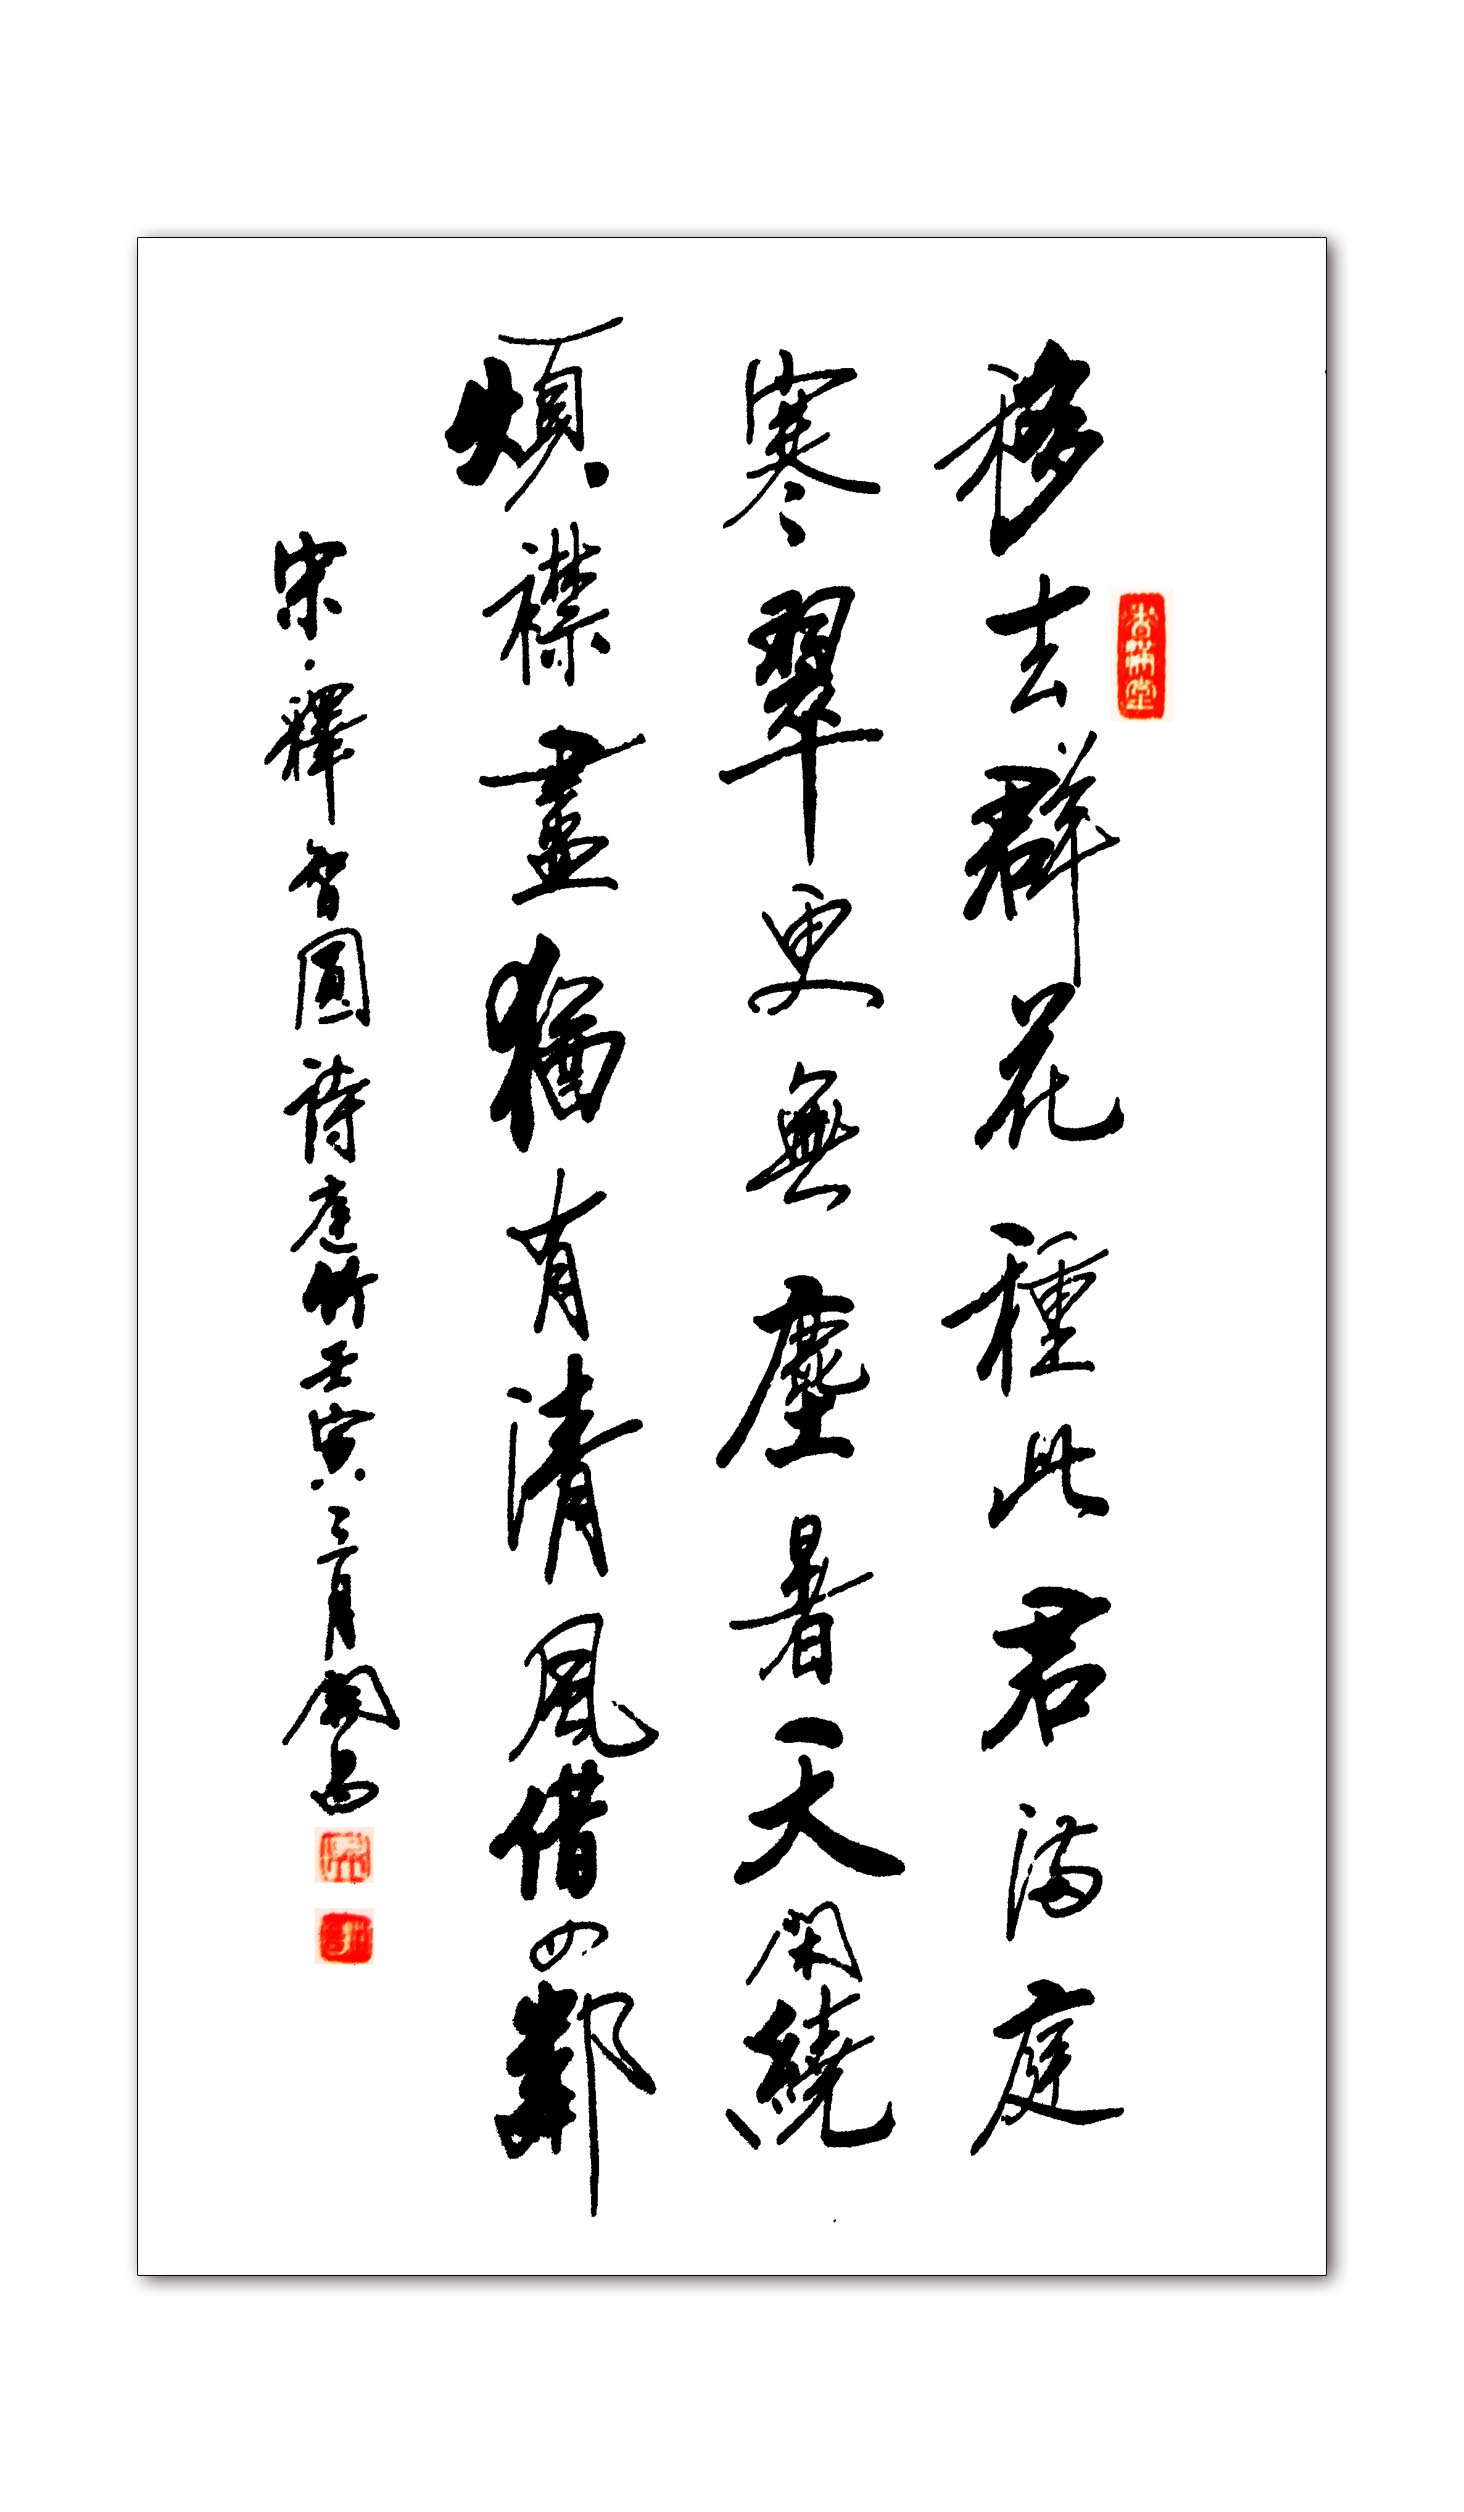 移去群花種此君滿庭
寒翠更無塵暑天閑繞
煩襟盡猶有清風借四鄰
宋·釋智圓詩庭竹壬寅三月